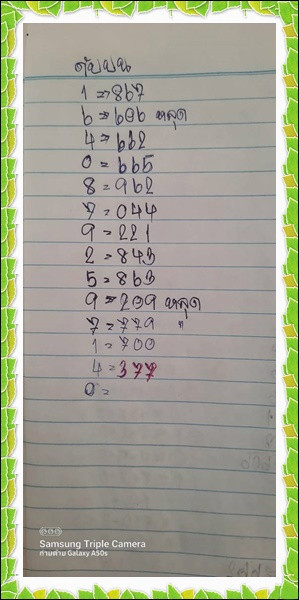 ดับบน
1 => 867
6 => 606 หลุด
4 = 662
0 = 665
8 = 962
7 = 044
9 = 221
2 = 843
5 = 863
9 = 209 หลุด
7 = 779 "
1 = 700
4 = 377
0 =
Samsung Triple Camera
ถ่ายด้วย Galaxy A50s